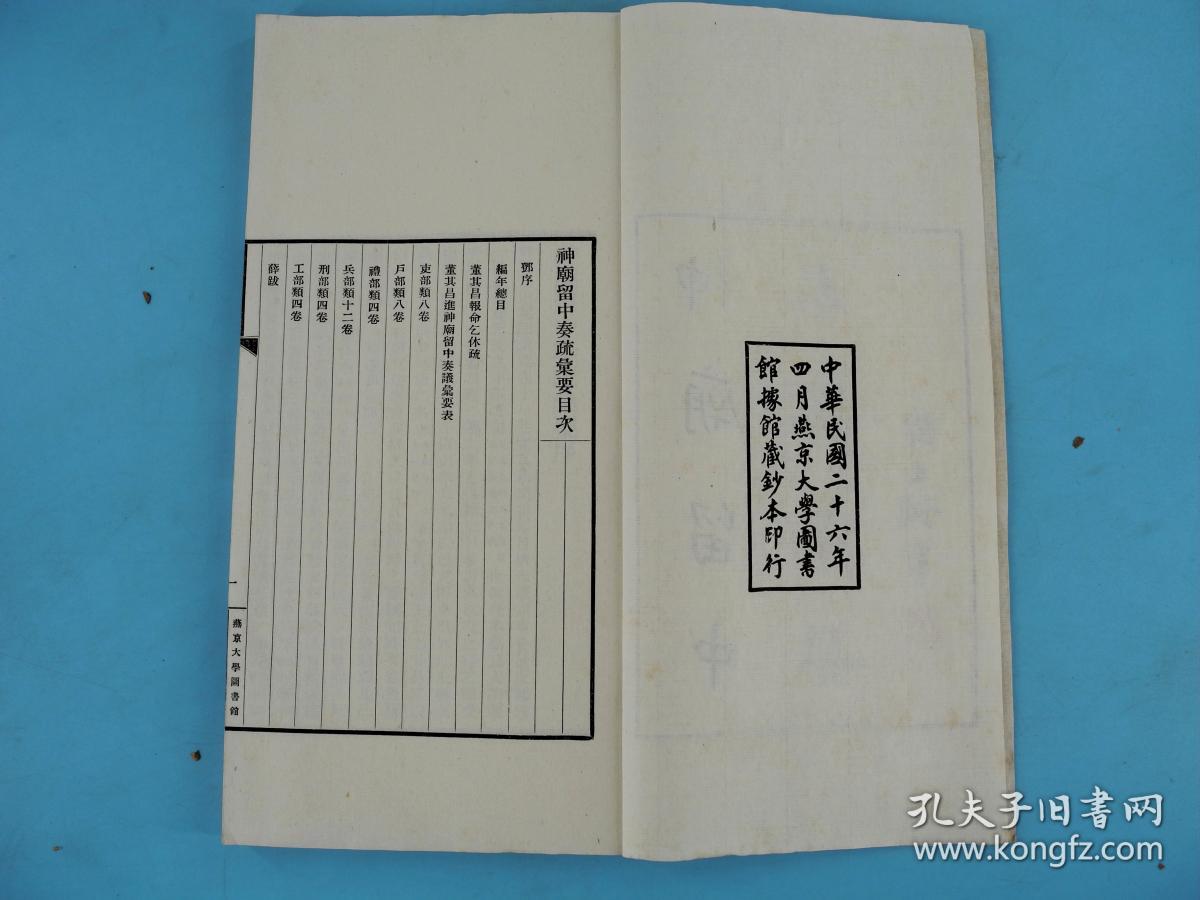 中華民國二十六年
四月燕京大學圖書
館據館藏鈔本印行
神廟留中奏疏彙要目次
鄧序
編年總目
董其昌報命乞休疏
董其昌進神廟留中奏議彙要表
吏部類八卷
戶部類八卷
禮部類四卷
兵部類十二卷
刑部類四卷
工部類四卷
薛跋
一
燕京大學圖書館
孔夫子旧书网
www.kongfz.com